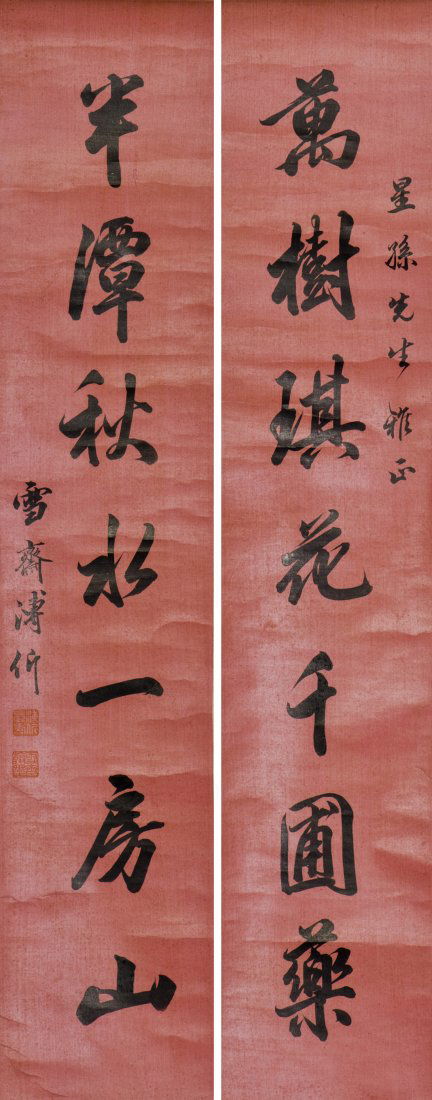 星孫先生雅正
萬樹琪花千圃藥
半潭秋水一房山
雪齋溥伒